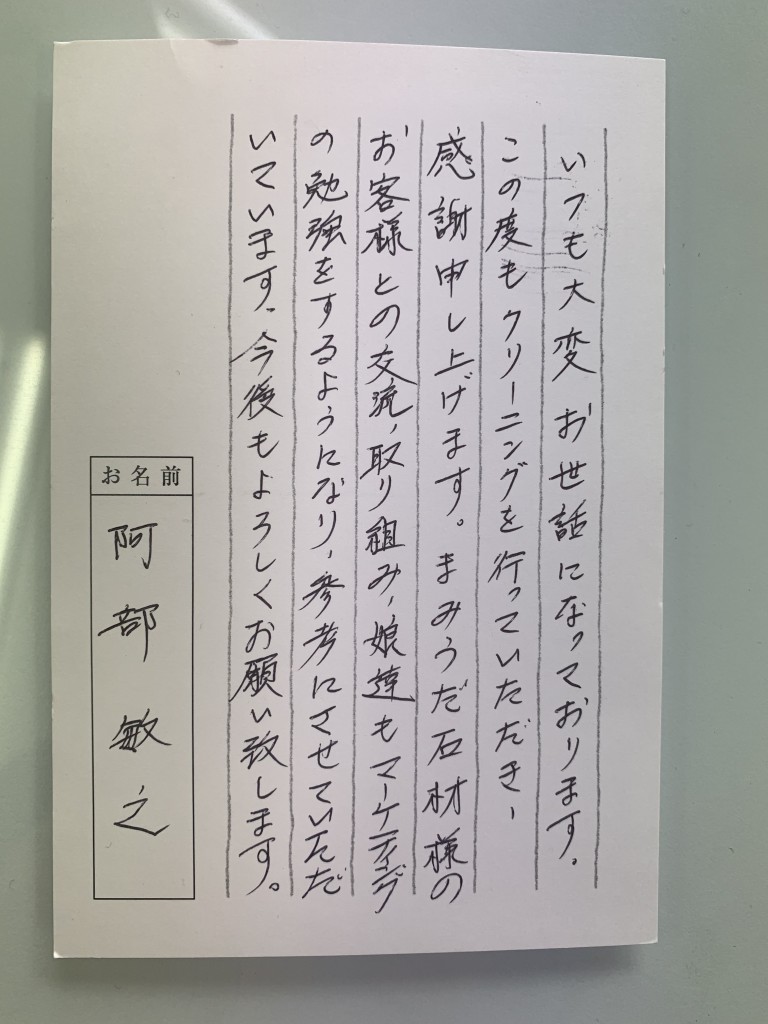 いつも大変お世話になっております。
この度もクリーニングを行っていただき、
感謝申し上げます。まみうだ石材様の
お客様との交流、取り組み、娘達もマーケティング
の勉強をするようになり、参考にさせていただ
いています。今後もよろしくお願い致します。
お名前
阿部敏之